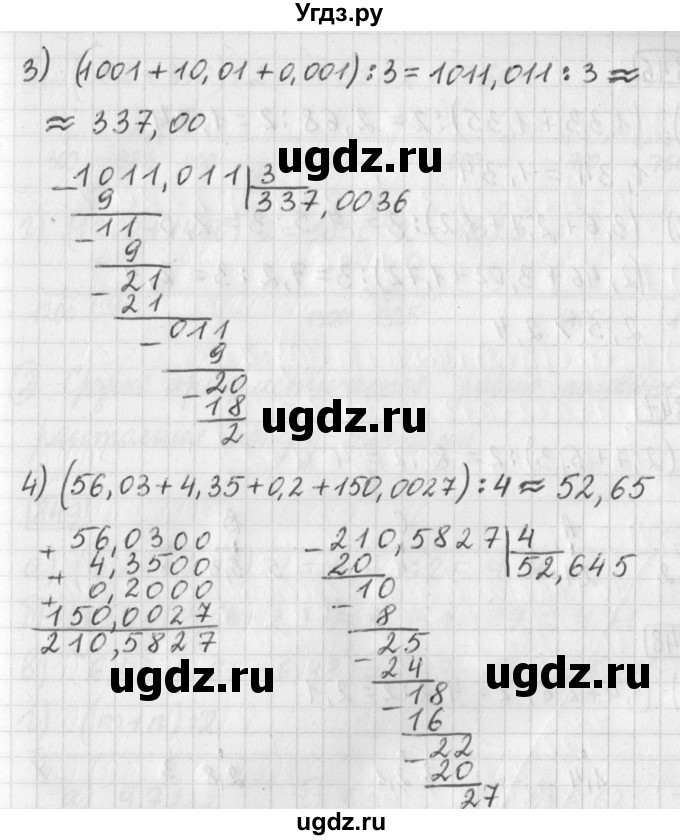 Угдз.ру
3) (1001 + 10,01 + 0,001) : 3 = 1011,011 : 3 ≈
≈ 337,00
ugdz.ru
- 1011,011 | 3
9 337,0036
- 11
9
- 21
21
- 011
9
- 20
18
2
ugdz.ru
4) (56,03 + 4,35 + 0,2 + 150,0027) : 4 ≈ 52,65
+ 56,0300
+ 4,3500
+ 0,2000
150,0027
210,5827
- 210,5827 | 4
20 52,645
- 10
8
- 25
24
- 18
16
- 22
20
27
ugdz.ru
ugdz.ru
ugdz.ru